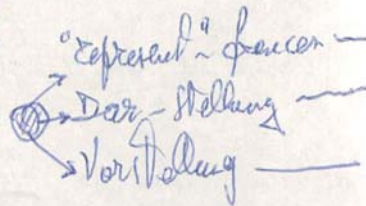 "represent" ~ francez —
Dar-Stellung —
Vorstellung —